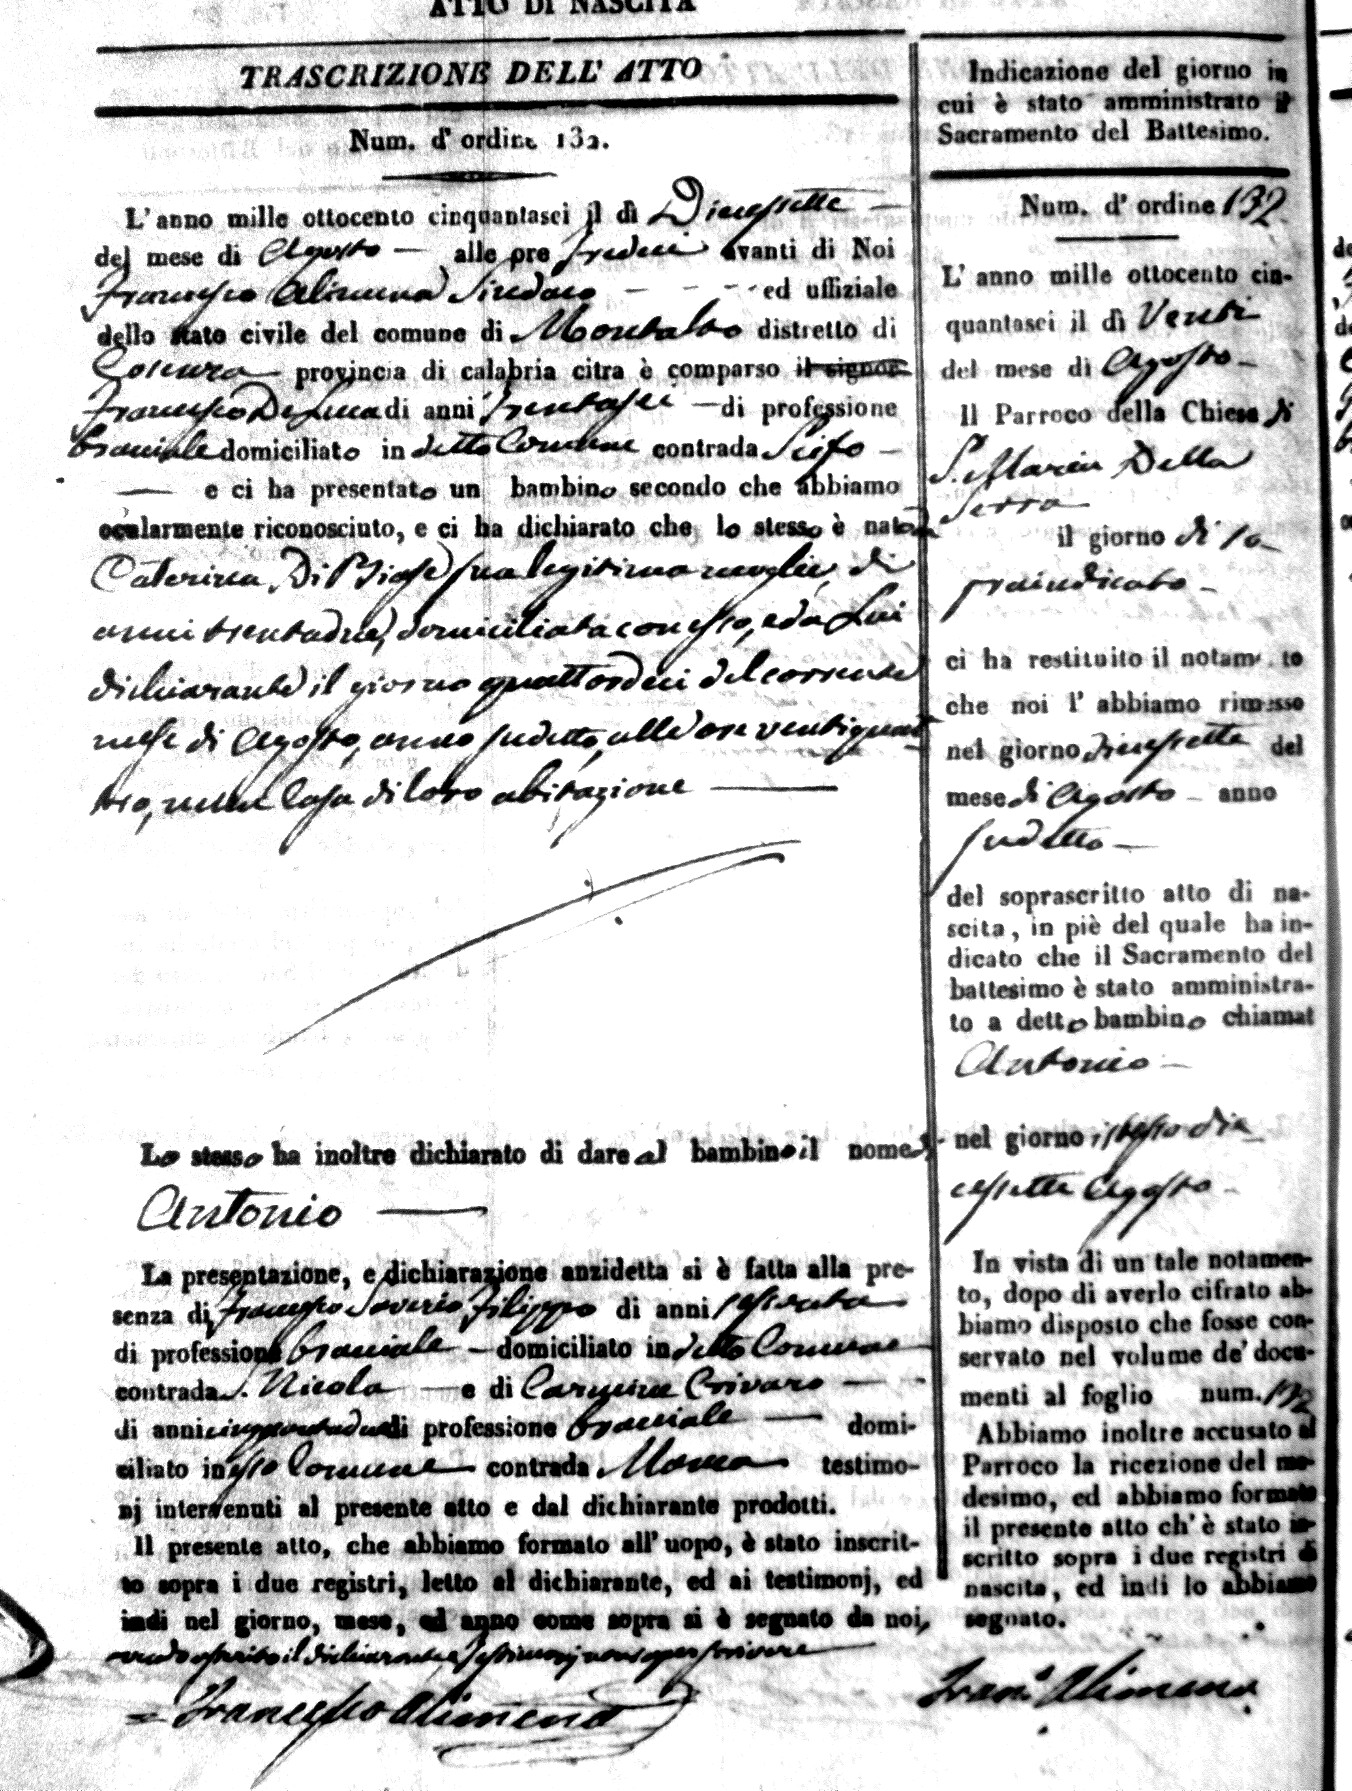 ATTO DI NASCITA
TRASCRIZIONE DELL' ATTO
Num. d' ordine 132.
L' anno mille ottocento cinquantasei il dì Diecessette —
del mese di Agosto — alle ore tredici avanti di Noi
Francesco Alimena Sindaco - - - - ed uffiziale
dello stato civile del comune di Montalto distretto di
Cosenza — provincia di calabria citra è comparso il signor
Francesco De Luca di anni trentasei — di professione
bracciale domiciliato in detto Comune contrada —
— e ci ha presentato un bambino secondo che abbiamo
ocularmente riconosciuto, e ci ha dichiarato che lo stesso è nato da
Caterina Di Biase sua legitima moglie, di
anni trentadue, domiciliata con esso, e da Lui
dichiarante il giorno quattordeci del corrente
mese di Agosto, anno sudetto, alle ore ventiquat
tro, nella Casa di loro abitazione —
Lo stesso ha inoltre dichiarato di dare al bambino il nome di
Antonio —
La presentazione, e dichiarazione anzidetta si è fatta alla pre-
senza di Francesco Saverio Filippo di anni sessanta
di professione bracciale — domiciliato in detto Comune
contrada S. Nicola — e di Carmine Crivaro —
di anni cinquantadue di professione bracciale — domi-
ciliato in esso Comune contrada testimo-
nj intervenuti al presente atto e dal dichiarante prodotti.
Il presente atto, che abbiamo formato all' uopo, è stato inscrit-
to sopra i due registri, letto al dichiarante, ed ai testimonj, ed
indi nel giorno, mese, ed anno come sopra si è segnato da noi,
avendo asserito il dichiarante, e testimonj non saper scrivere
= Francesco Alimena
Indicazione del giorno in
cui è stato amministrato il
Sacramento del Battesimo.
Num. d' ordine 132
L' anno mille ottocento cin-
quantasei il dì Venti
del mese di Agosto —
Il Parroco della Chiesa di
S. Maria Della
Serra
il giorno di so-
praindicato —
ci ha restituito il notamento
che noi l' abbiamo rimesso
nel giorno diecessette del
mese di Agosto — anno
sudetto —
del soprascritto atto di na-
scita, in piè del quale ha in-
dicato che il Sacramento del
battesimo è stato amministra-
to a detto bambino chiamat
Antonio —
nel giorno istesso die
cessette Agosto —
In vista di un tale notamen-
to, dopo di averlo cifrato ab-
biamo disposto che fosse con-
servato nel volume de' docu-
menti al foglio num. 132
Abbiamo inoltre accusato al
Parroco la ricezione del me-
desimo, ed abbiamo formato
il presente atto ch' è stato in-
scritto sopra i due registri di
nascita, ed indi lo abbiamo
segnato.
Franc. Alimena